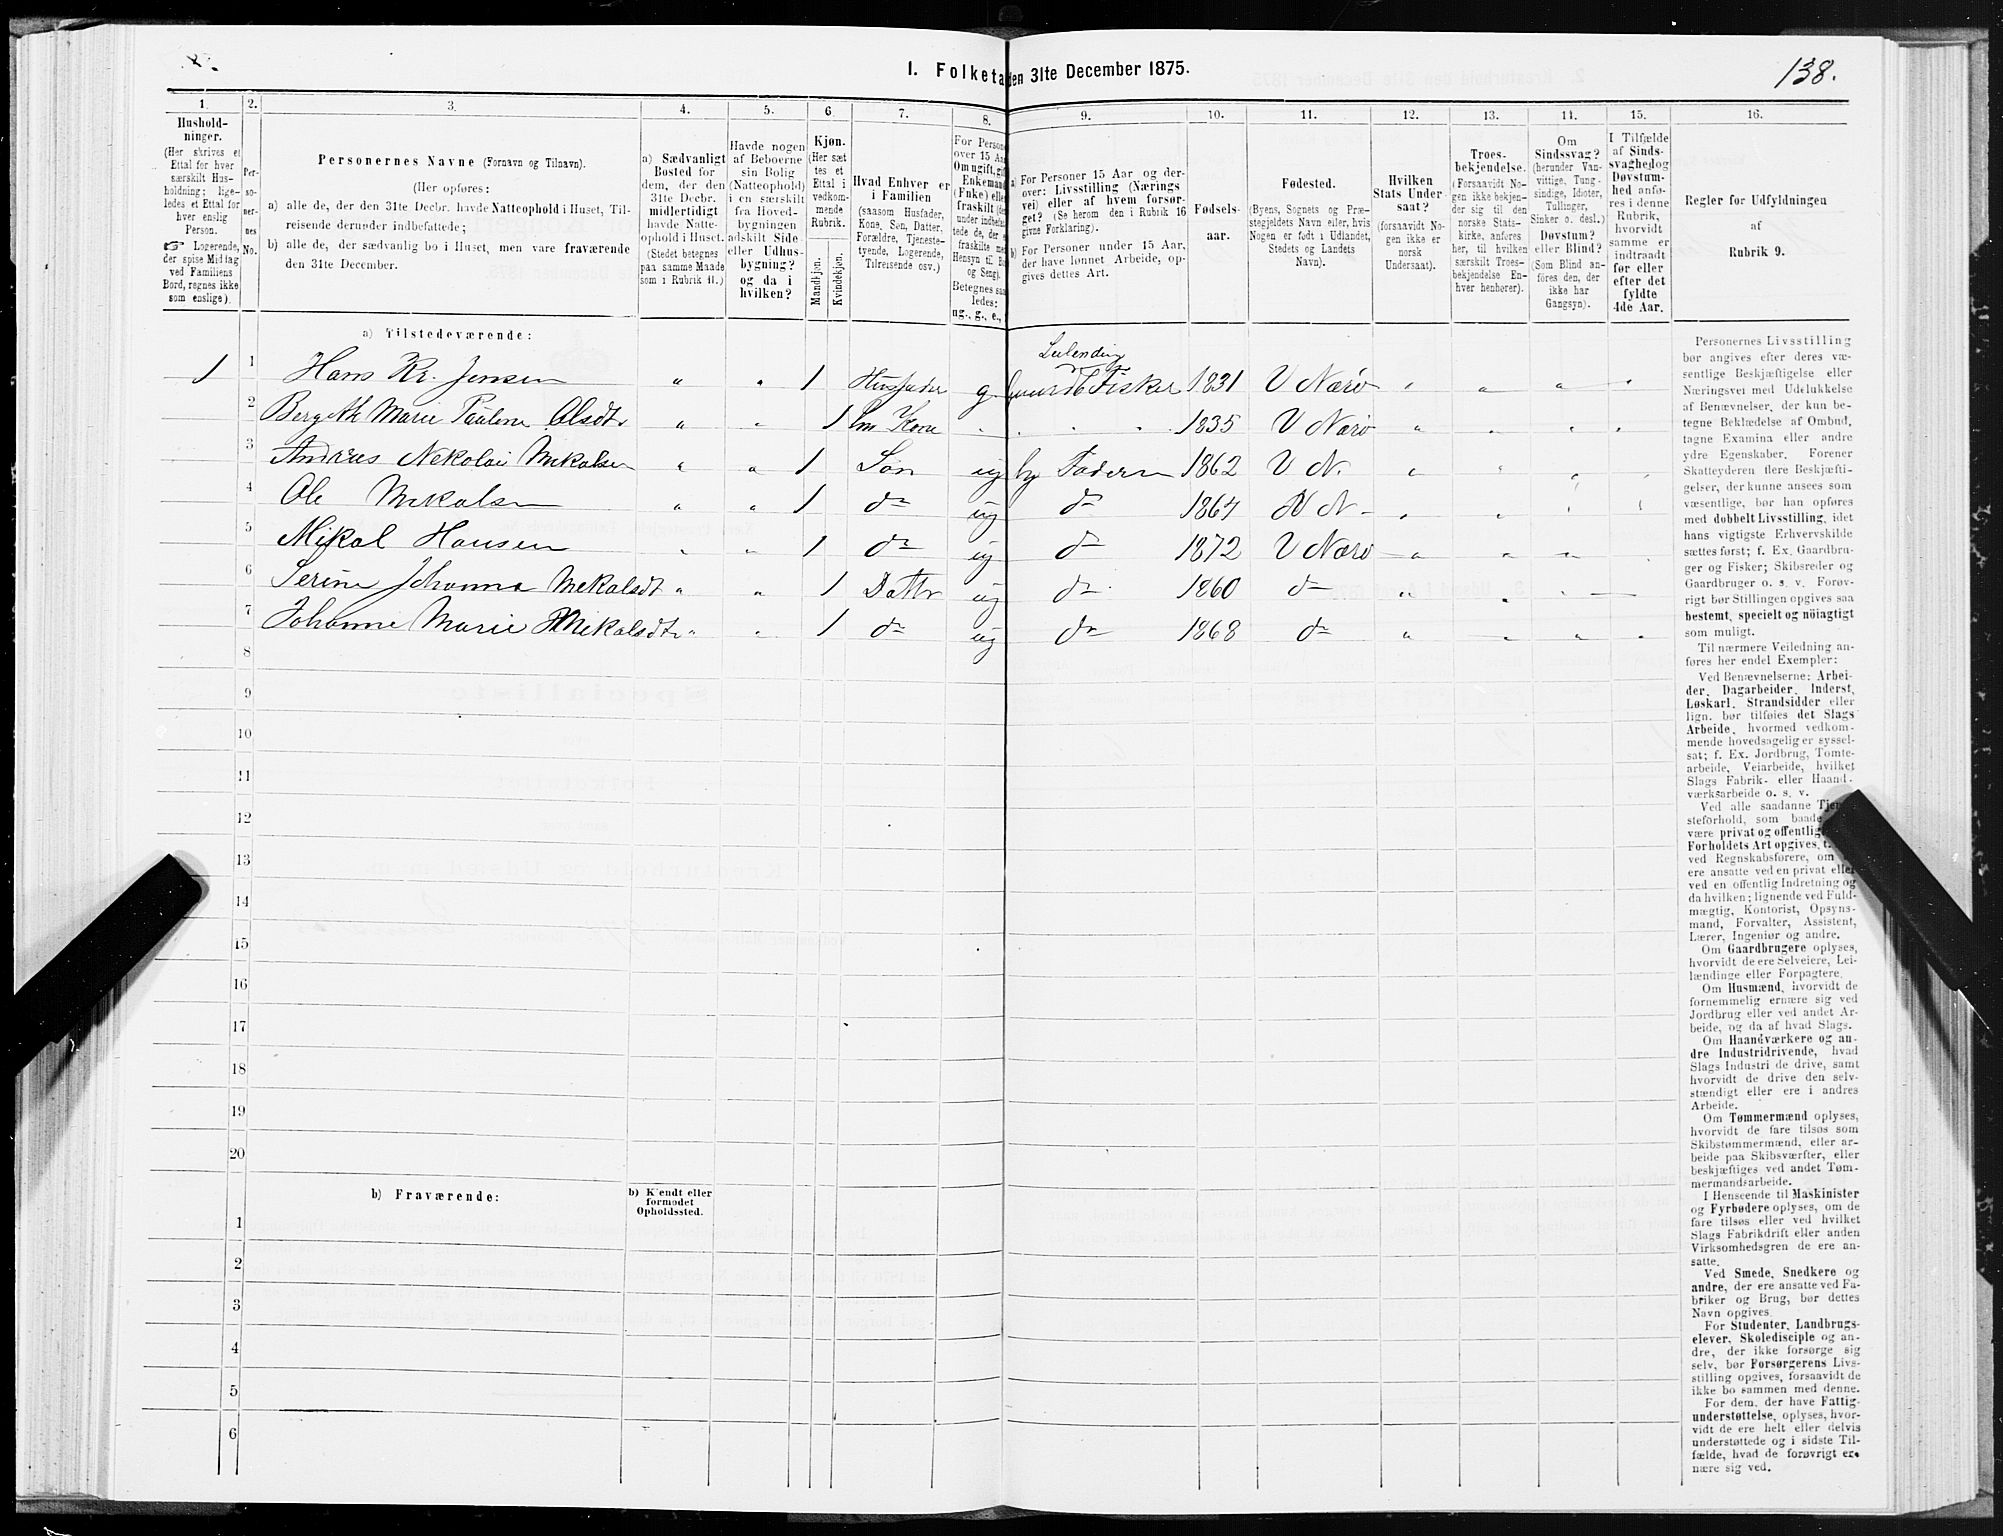 1. Folketa den 31te December 1875.
138.
1. 2. 3. 4. 5. 6. 7. 8. 9. 10. 11. 12. 13. 14. 15. 16.
Hushold-
ninger.
(Her skrives et
Ettal for hver
særskilt Hus-
holdning; lige-
ledes et Ettal for
hver enslig
Person.
☞ Logerende,
der spise Middag
ved Familiens
Bord, regnes ikke
som enslige).
Per-
so-
ner-
nes
No.
Personernes Navne (Fornavn og Tilnavn).
(Her opføres:
a) alle de, der den 31te Decbr. havde Natteophold i Huset, Til-
reisende derunder indbefattede;
b) alle de, der sædvanlig bo i Huset, men vare fraværende
den 31te December.
a) Sædvanligt
Bosted for
dem, der den
31te Decbr.
midlertidigt
havde Natte-
ophold i Huset.
(Stedet betegnes
paa samme Maade
som i Rubrik 11.)
Havde nogen
af Beboerne
sin Bolig
(Natteophold)
i en særskilt
fra Hoved-
bygningen
adskilt Side-
eller Udhus-
bygning?
og da i
hvilken?
Kjøn.
(Her sæt-
tes et
Ettal i
vedkom-
mende
Rubrik.
Mandkjøn.
Kvindekjøn.
Hvad Enhver er
i Familien
(saasom Husfader,
Kone, Søn, Datter,
Forældre, Tjeneste-
tyende, Logerende,
Tilreisende osv.)
For Persone
over 15 Aa
Om ugift, gif
Enkemand
(Enke) elle
fraskilt
under indbefat-
tede de, der e
fraskilte me
Hensyn til Bo
og Seng).
Betegnes saa
ledes:
ug., g., e.,
a) For Personer 15 Aar og der-
over: Livsstilling (Nærings
vei) eller af hvem forsør-
get? (Se herom den i Rubrik 16
givne Forklaring).
b) For Personer under 15 Aar,
der have lønnet Arbeide, op-
gives dettes Art.
Fødsels-
aar.
Fødested.
(Byens, Sognets og Præ-
stegjeldets Navn eller, hvis
Nogen er født i Udlandet,
Stedets og Landets
Navn).
Hvilken
Stats Under-
saat?
(forsaavidt No-
gen ikke er
norsk
Undersaat).
Troes-
bekjendelse.
(Forsaavidt No-
gen ikke bekjen-
der sig til den
norske Stats-
kirke, anføres
her, til hvilken
særskilt Troes-
bekjendelse En-
hver henhører).
Om
Sindssvag?
(herunder Van-
vittige, Tung-
sindige, Idioter,
Tullinger,
Sinker o. desl.)
Døvstum?
eller Blind?
(Som Blind an-
føres den, der
ikke har
Gangsyn).
I Tilfælde
af Sinds-
svaghed og
Døvstum-
hed anfø-
res i denne
Rubrik,
hvorvidt
samme er
indtraadt
før eller
efter det
fyldte
4de Aar.
Regler for Udfyldningen
af
Rubrik 9.
a) Tilstedeværende:
Leilending
1 1 Hans Kr. Jensen " " 1 Husfader g. Fisker 1831 V Nærø " " " "
2 Bergith Marie Pauline Olsdtr " " 1 Kone " " 1835 V Nærø " " " "
3 Andreas Nekolai Mekalsen " " 1 Søn ug Faderen 1862 V N. " " " "
4 Ole Mekalsen " " 1 do ug do 1864 V N " " " "
5 Mikal Hansen " " 1 do ug do 1872 V Nærø " " " "
6 Serine Johanna Mekalsdt " " 1 Dattr ug do 1860 do " " " "
7 Johanne Marie Mikalsdtr " " 1 do ug do 1868 do " " " "
8
9
10
11
12
13
14
15
16
17
18
19
20
b) Fraværende:
b) Kjendt eller
formodet
Opholdssted.
1
2
3
4
5
6
Personernes Livsstilling
bør angives efter deres væ-
sentlige Beskjæftigelse eller
Næringsvei med Udelukkelse
af Benævnelser, der kun be-
tegne Beklædelse af Ombud,
tagne Examina eller andre
ydre Egenskaber. Forener
Skatteyderen flere Beskjæfti-
gelser, der kunne ansees som
væsentlige, bør han opføres
med dobbelt Livsstilling, idet
hans vigtigste Erhvervskilde
sættes først; f. Ex. Gaardbru-
ger og Fisker; Skibsreder og
Gaardbruger o. s. v. Forøv-
rigt bør Stillingen opgives saa
bestemt, specielt og nøiagtigt
som muligt.
Til nærmere Veiledning an-
føres her endel Exempler:
Ved Benævnelserne: Arbei-
der, Dagarbeider, Inderst,
Løskarl, Strandsidder eller
lign. bør tilføies det Slags
Arbeide, hvormed vedkom-
mende hovedsagelig er syssel-
sat; f. Ex. Jordbrug, Tomte-
arbeide, Veiarbeide, hvilket
Slags Fabrik- eller Haand-
værksarbeide o. s. v.
Ved alle saadanne Tjen
steforhold, som baade
være privat og offentlig
Forholdets Art opgives, t.
ved Regnskabsførere, om
ere ansatte ved en privat elle
ved en offentlig Indretning og
da hvilken; lignende ved Fuld-
mægtig, Kontorist, Opsyns-
mand, Forvalter, Assistent,
Lærer, Ingeniør og andre.
Om Gaardbrugere oplyses,
hvorvidt de ere Selveiere, Lei-
lændinge eller Forpagtere.
Om Husmænd, hvorvidt de
fornemmelig ernære sig ved
Jordbrug eller ved andet Ar-
beide, og da af hvad Slags.
Om Haandværkere og an-
dre Industridrivende, hvad
Slags Industri de drive, samt
hvorvidt de drive den selv-
stændigt eller ere i andres
Arbeide.
Om Tømmermænd oplyses,
hvorvidt de fare tilsøs som
Skibstømmermænd, eller ar-
beide paa Skibsværfter, eller
beskjæftiges ved andet Tøm-
mermandsarbeide.
I Henseende til Maskinister
og Fyrbødere oplyses, om de
fare tilsøs eller ved hvilket
Slags Fabrikdrift eller anden
Virksomhedsgren de ere an-
satte.
Ved Smede, Snedkere og
andre, der ere ansatte ved Fa-
briker og Brug, bør dettes
Navn opgives.
For Studenter, Landbrugs-
elever, Skoledisciple og an-
dre, der ikke forsørge sig
selv, bør Forsørgerens Livs-
stilling opgives, forsaavidt de
ikke bo sammen med denne.
For dem, der have Fattig-
understøttelse, oplyses, hvor-
vidt de ere helt eller delvis
understøttede og i sidste Til-
fælde, hvad de forøvrigt er-
nære sig ved.